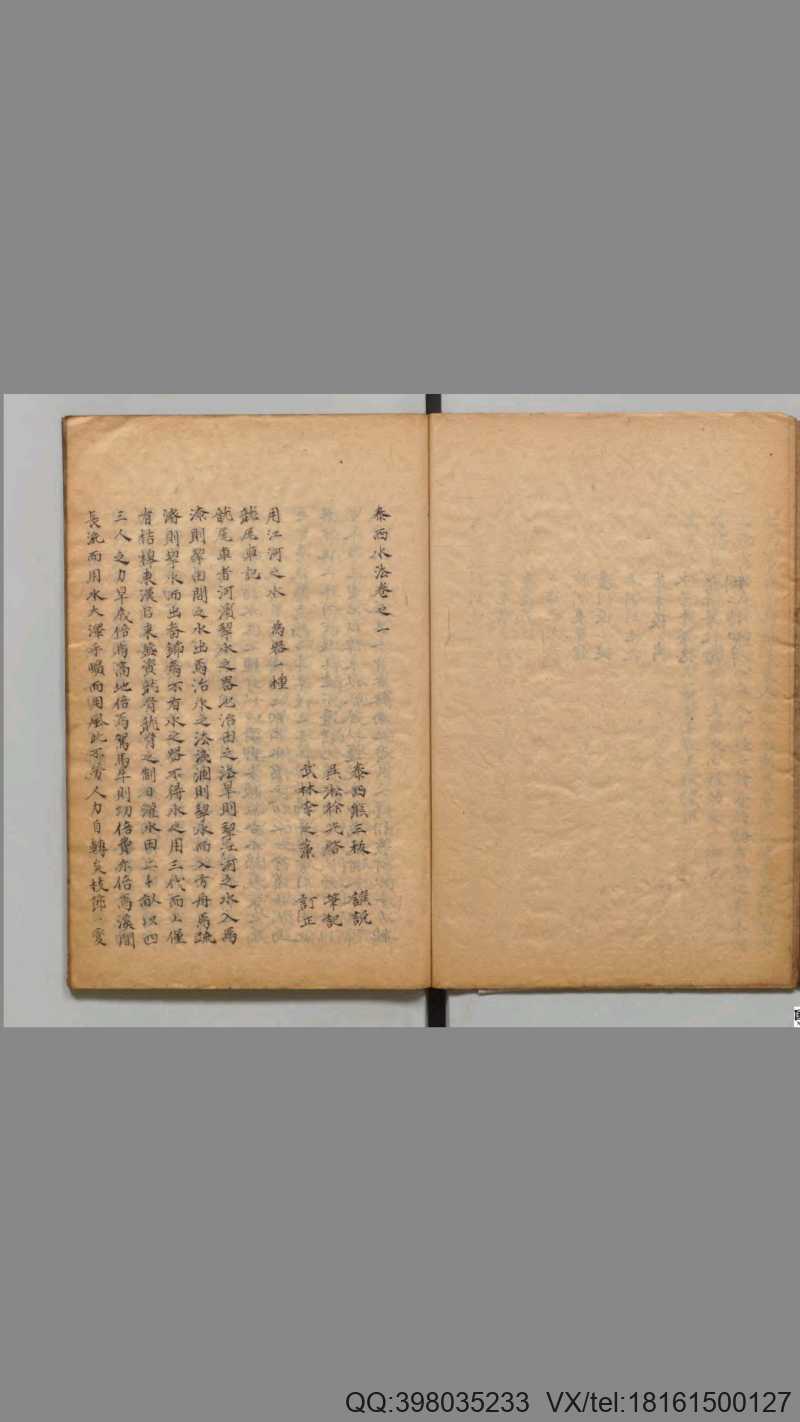 泰西水法卷之一
泰西熊三拔 譔説
吳淞徐光啓 筆記
武林李之藻 訂正
用江河之水 爲器一種
龍尾車記
龍尾車者河濱挈水之器也治田之法旱則挈江河之水入焉
潦則挈田間之水出焉治水之法淺涸則挈水而入方舟焉疏
濬則挈水而出畚鍤焉不有水之器不得水之用三代而上僅
有桔槔東漢以來盛資龍骨龍骨之制日灌水田二十畝以四
三人之力旱歲倍焉高地倍焉駕馬牛則功倍費亦倍焉溪澗
長流而用水大澤平曠而用風此不勞人力自轉矣枝節一變
QQ:398035233 VX/tel:18161500127